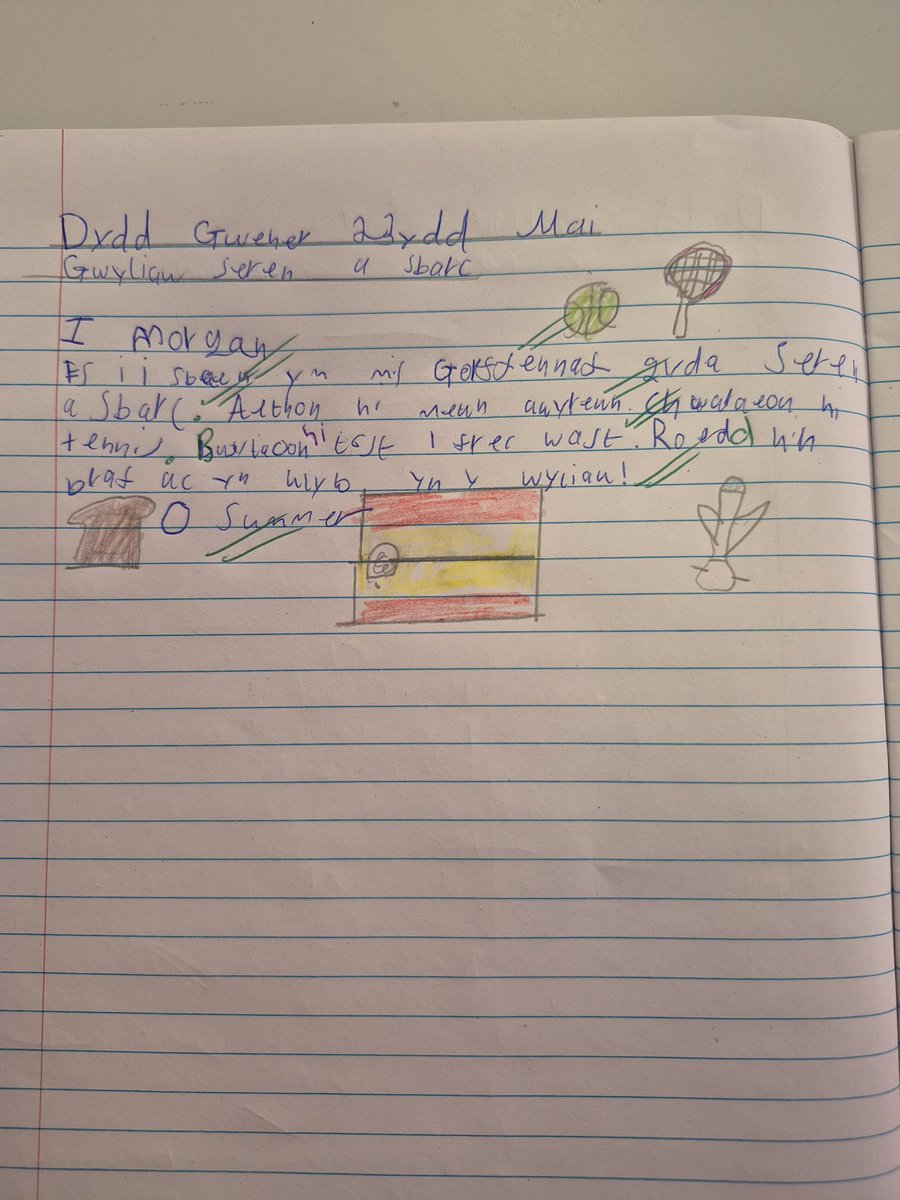 Dydd Gweher 22ydd Mai
Gwyliau Seren a Sbarc
I Morgan
Es i i Sbaen yn mis Gorffennaf gyda Seren
a Sbarc. Aethon ni mewn awyrenn. Chwaraeon ni
tennis. Bwytaoon ni tost i frec wast. Roedd hi'n
braf ac yn hlyb yn y wyliau!
O Summer